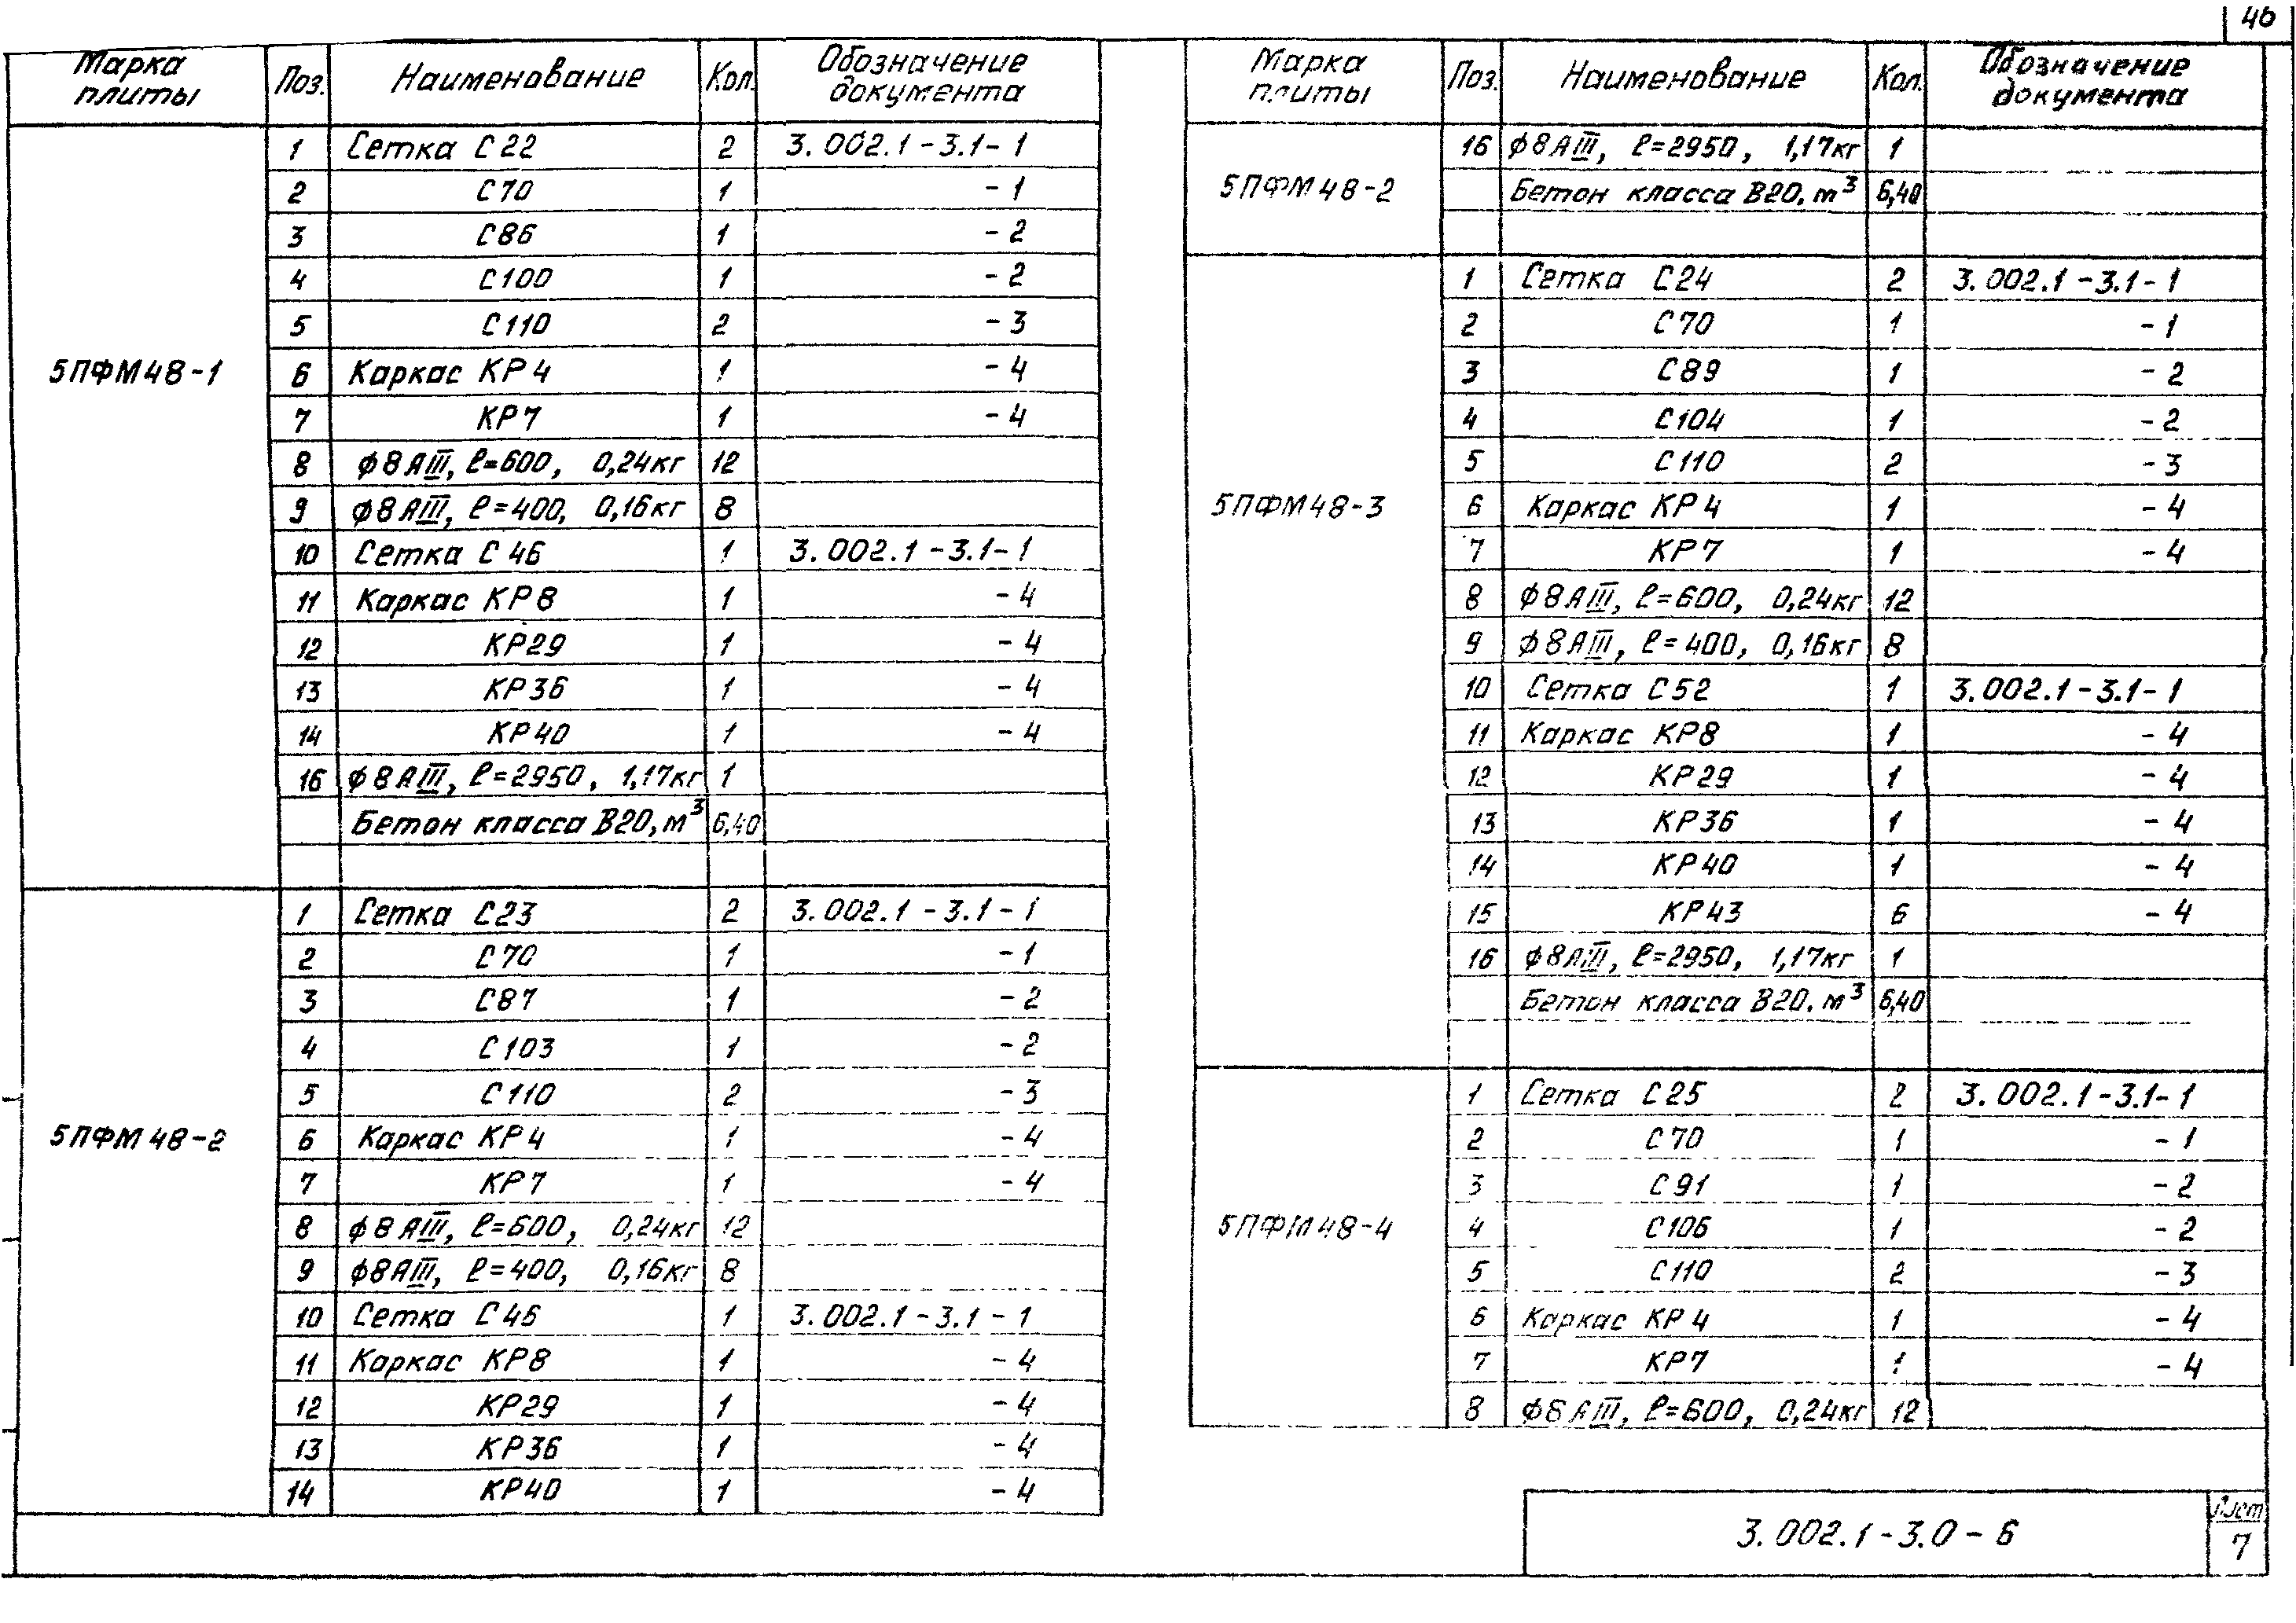 46
Марка плиты Поз. Наименование Кол. Обозначение документа
5ПФМ48-1
1 Сетка С22 2 3.002.1-3.1-1
2 С70 1 -1
3 С86 1 -2
4 С100 1 -2
5 С110 2 -3
6 Каркас КР4 1 -4
7 КР7 1 -4
8 ф8АIII, ℓ=600, 0,24кг 12
9 ф8АIII, ℓ=400, 0,16кг 8
10 Сетка С46 1 3.002.1-3.1-1
11 Каркас КР8 1 -4
12 КР29 1 -4
13 КР36 1 -4
14 КР40 1 -4
16 ф8АIII, ℓ=2950, 1,17кг 1
Бетон класса В20, м³ 6,40
5ПФМ48-2
1 Сетка С23 2 3.002.1-3.1-1
2 С70 1 -1
3 С87 1 -2
4 С103 1 -2
5 С110 2 -3
6 Каркас КР4 1 -4
7 КР7 1 -4
8 ф8АIII, ℓ=600, 0,24кг 12
9 ф8АIII, ℓ=400, 0,16кг 8
10 Сетка С46 1 3.002.1-3.1-1
11 Каркас КР8 1 -4
12 КР29 1 -4
13 КР36 1 -4
14 КР40 1 -4
Марка плиты Поз. Наименование Кол. Обозначение документа
5ПФМ48-2
16 ф8АIII, ℓ=2950, 1,17кг 1
Бетон класса В20, м³ 6,40
5ПФМ48-3
1 Сетка С24 2 3.002.1-3.1-1
2 С70 1 -1
3 С89 1 -2
4 С104 1 -2
5 С110 2 -3
6 Каркас КР4 1 -4
7 КР7 1 -4
8 ф8АIII, ℓ=600, 0,24кг 12
9 ф8АIII, ℓ=400, 0,16кг 8
10 Сетка С52 1 3.002.1-3.1-1
11 Каркас КР8 1 -4
12 КР29 1 -4
13 КР36 1 -4
14 КР40 1 -4
15 КР43 6 -4
16 ф8АIII, ℓ=2950, 1,17кг 1
Бетон класса В20, м³ 6,40
5ПФМ48-4
1 Сетка С25 2 3.002.1-3.1-1
2 С70 1 -1
3 С91 1 -2
4 С106 1 -2
5 С110 2 -3
6 Каркас КР4 1 -4
7 КР7 1 -4
8 ф8АIII, ℓ=600, 0,24кг 12
3.002.1-3.0-6
Лист
7